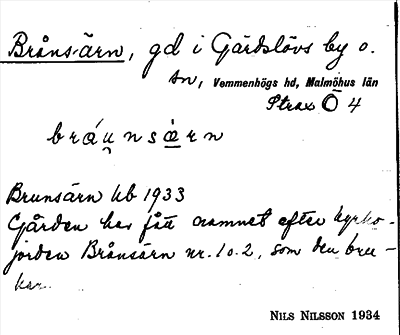 Brånsärn, gd i Gärdslövs by o.
sn, Vemmenhögs hd, Malmöhus län
Strax Ö 4
bráu̯nsạrn
Brunsärn hb 1933
Gården har fått namnet efter kyrko-
jorden Brånsärn nr. 1 o. 2, som den bru-
kar.
NILS NILSSON 1934